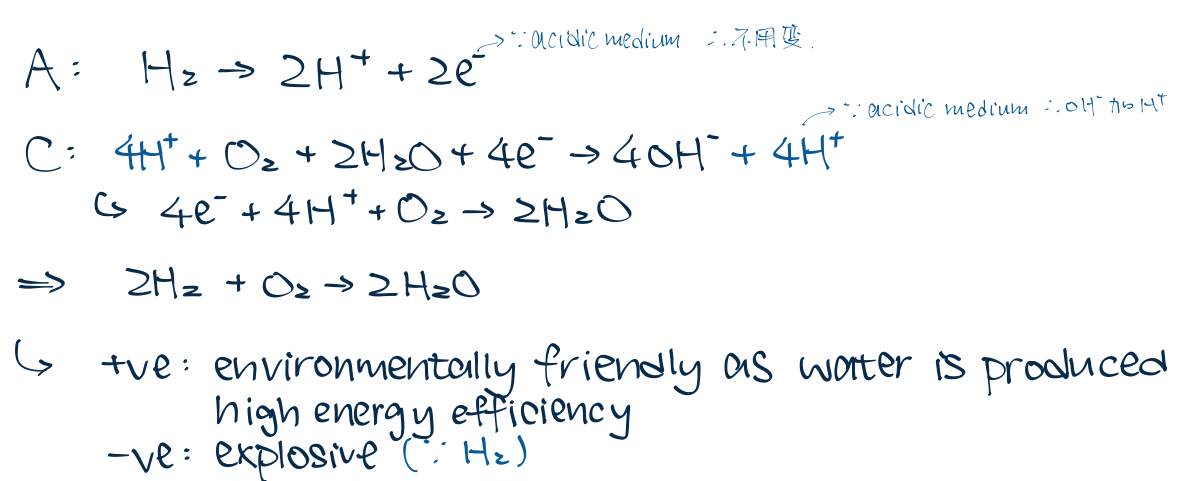 ∵ acidic medium ∴不用变.
A: H₂ → 2H⁺ + 2e⁻
∵ acidic medium ∴OH⁻加H⁺
C: 4H⁺ + O₂ + 2H₂O + 4e⁻ → 4OH⁻ + 4H⁺
↪ 4e⁻ + 4H⁺ + O₂ → 2H₂O
⇒ 2H₂ + O₂ → 2H₂O
↪ +ve: environmentally friendly as water is produced
high energy efficiency
-ve: explosive (∵ H₂)